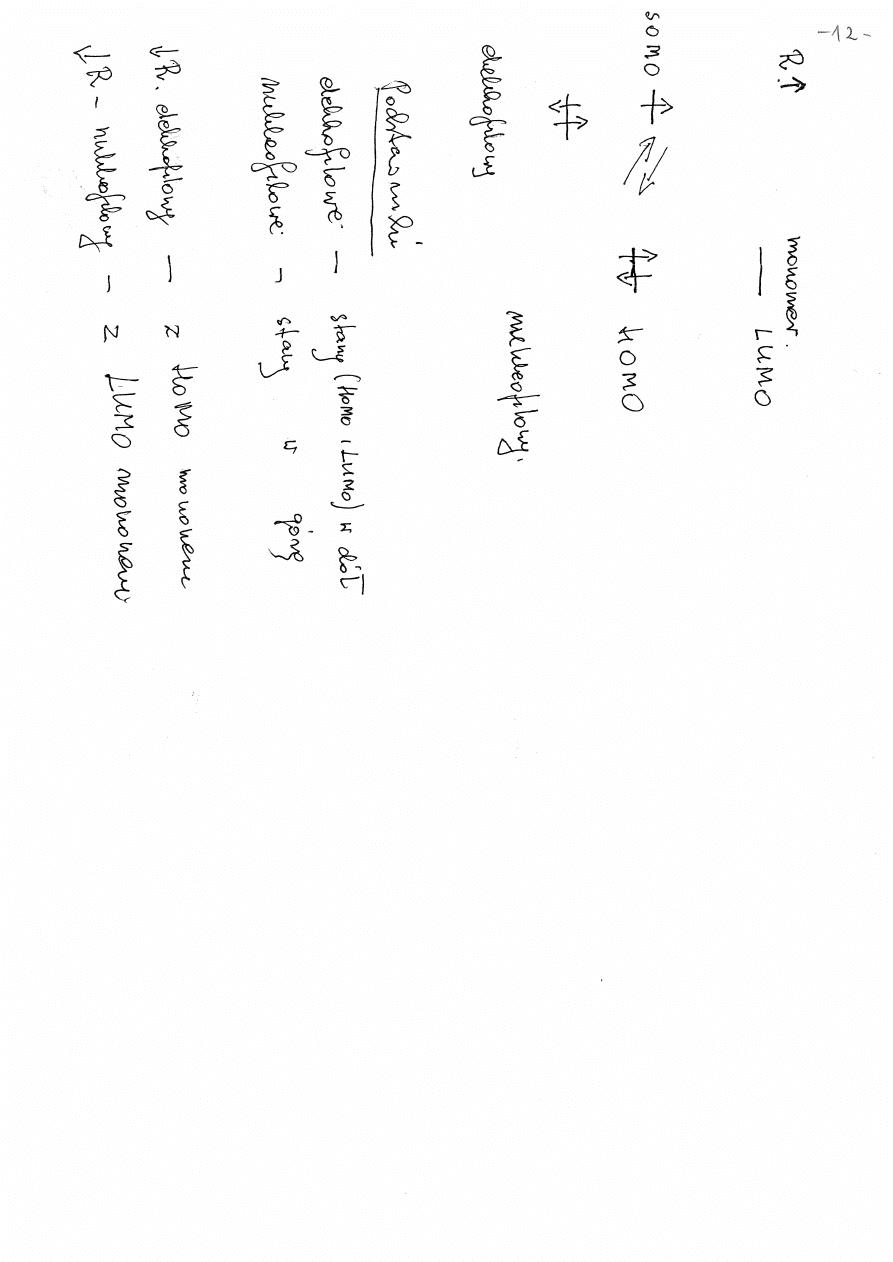 -12-
R↑ monomer.
— LUMO
SOMO HOMO
elektrofilowy nukleofilowy.
Podstawniki
elektrofilowe - stany (HOMO i LUMO) w dół
nukleofilowe - stany w górę
↓R. elektrofilowy - z HOMO monomeru
↓R - nukleofilowy - z LUMO monomeru